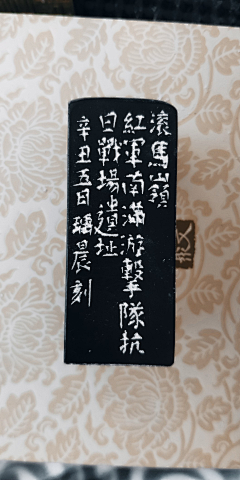 滚馬山嶺
紅軍南滿游擊隊抗
日戰場遺址
辛丑五月瑀晨刻